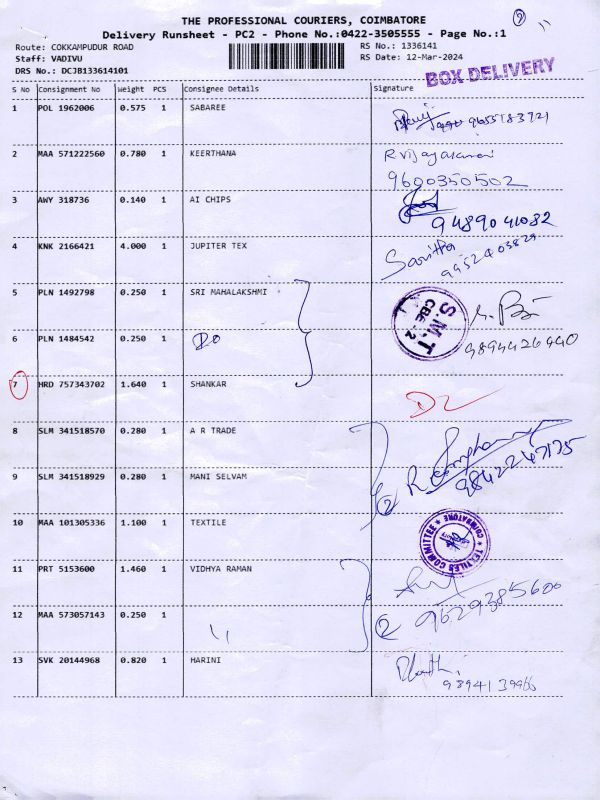 THE PROFESSIONAL COURIERS, COIMBATORE
Delivery Runsheet - PC2 - Phone No.:0422-3505555 - Page No.:1
Route: COKKAMPUDUR ROAD
RS No.: 1336141
Staff: VADIVU
RS Date: 12-Mar-2024
DRS No.: DCJB133614101
BOX DELIVERY
S No Consignment No Weight PCS Consignee Details Signature
1 POL 1962006 0.575 1 SABAREE
9655183721
2 MAA 571222560 0.780 1 KEERTHANA
9600350502
3 AWY 318736 0.140 1 AI CHIPS
9489041082
4 KNK 2166421 4.000 1 JUPITER TEX
Savitha
9952403829
5 PLN 1492798 0.250 1 SRI MAHALAKSHMI
S.M.T
CBE-2
6 PLN 1484542 0.250 1 DO
9894426440
7 HRD 757343702 1.640 1 SHANKAR
8 SLM 341518570 0.280 1 A R TRADE
9 SLM 341518929 0.280 1 MANI SELVAM
2
9842247175
10 MAA 101305336 1.100 1 TEXTILE
TEXTILES COMMITTEE
COIMBATORE
11 PRT 5153600 1.460 1 VIDHYA RAMAN
12 MAA 573057143 0.250 1 "
2 9629385600
13 SVK 20144968 0.820 1 HARINI
9894139966